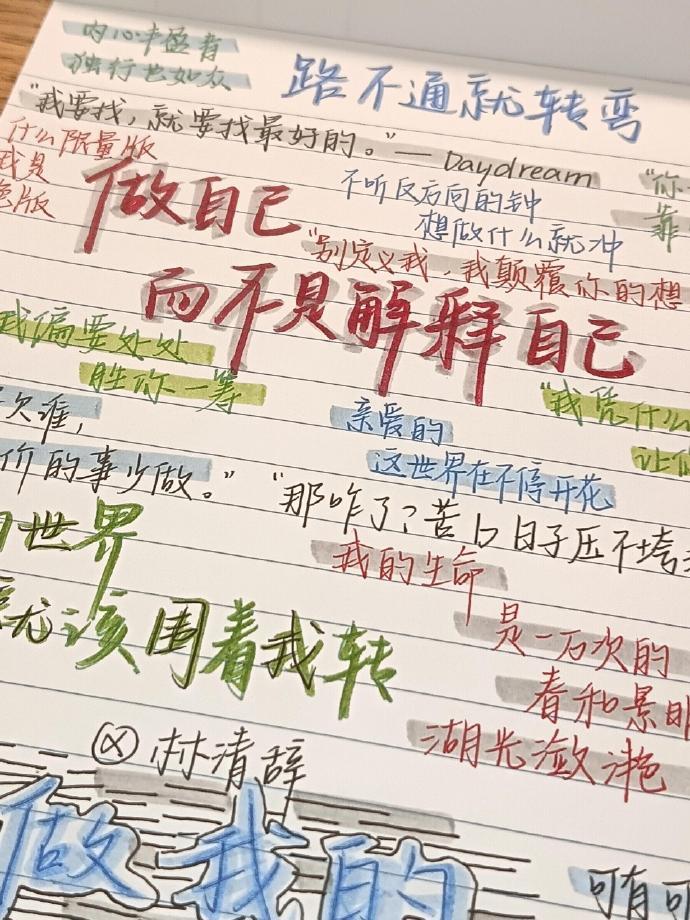 内心丰盈者
独行也如众
路不通就转弯
"我要找，就要找最好的。"— Daydream
什么限量版
我是
色版
做自己
不听反方向的钟
想做什么就冲
"你
靠
"别定义我，我颠覆你的想
而不是解释自己
我偏要处处
胜你一筹
"我凭什么
让你
欠谁，
价的事少做。"
亲爱的
这世界在不停开花
"那咋了？苦日子压不垮
世界
就该围着我转
我的生命
是一万次的
春和景明
湖光潋滟
林清辞
做我的
可有可